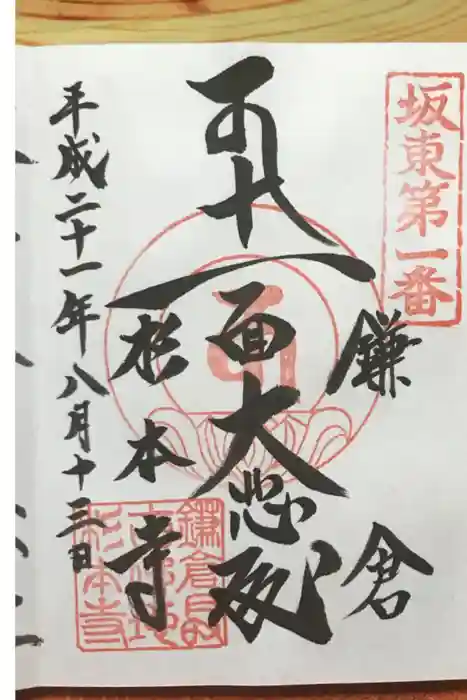 坂東第一番
鎌倉
十一面大悲殿
杉本寺
平成二十一年八月十三日
鎌倉最
古佛地
杉本寺